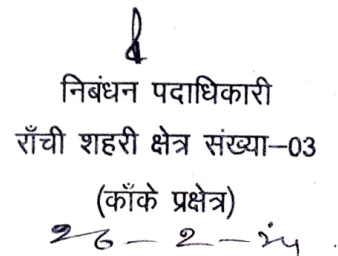 निबंधन पदाधिकारी
राँची शहरी क्षेत्र संख्या-03
(काँके प्रक्षेत्र)
26-2-24